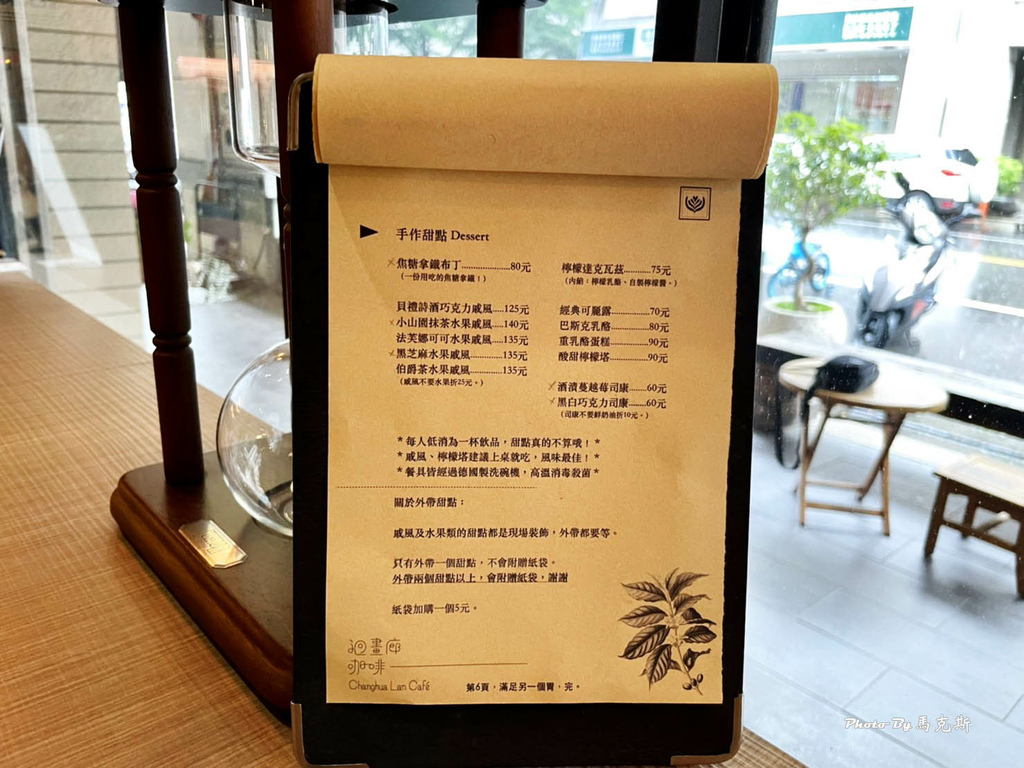 手作甜點 Dessert
焦糖拿鐵布丁.....................80元
（一份用吃的焦糖拿鐵！）
貝禮詩酒巧克力戚風.....125元
小山園抹茶水果戚風.....140元
法芙娜可可水果戚風.....135元
黑芝麻水果戚風..............135元
伯爵茶水果戚風..............135元
（戚風不要水果折25元。）
檸檬達克瓦茲............75元
（內餡：檸檬乳酪、自製檸檬醬。）
經典可麗露.................70元
巴斯克乳酪.................80元
重乳酪蛋糕.................90元
酸甜檸檬塔.................90元
酒漬蔓越莓司康........60元
黑白巧克力司康........60元
（司康不要鮮奶油折10元。）
*每人低消為一杯飲品，甜點真的不算哦！*
*戚風、檸檬塔建議上桌就吃，風味最佳！*
*餐具皆經過德國製洗碗機，高溫消毒殺菌*
關於外帶甜點：
戚風及水果類的甜點都是現場裝飾，外帶都要等。
只有外帶一個甜點，不會附贈紙袋。
外帶兩個甜點以上，會附贈紙袋，謝謝
紙袋加購一個5元。
迴畫廊
咖啡
Changhua Lan Café
第6頁，滿足另一個胃，完。
Photo By 馬克斯